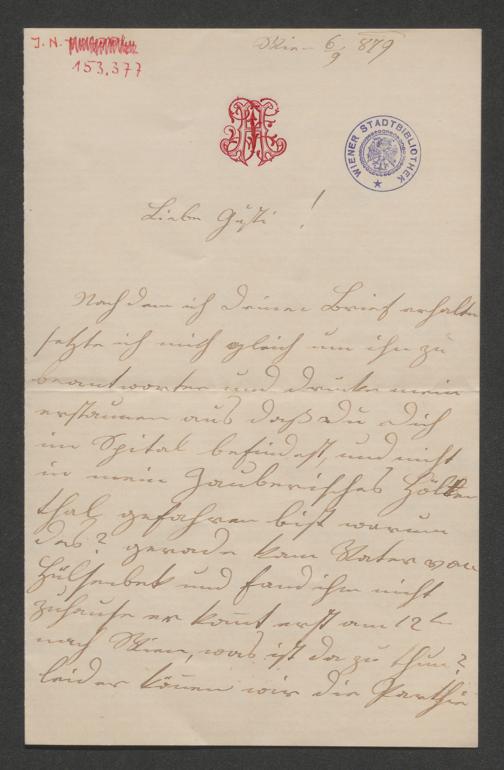 J. N.
153.377
Wien 6/9 879
WIENER STADTBIBLIOTHEK
Liebe Gusti!
Nach dem ich deinen Brief erhalten
setzte ich mich gleich um ihn zu
beantworten und drücke mein
erstaunen aus daß du dich
im Spital befindest, und nicht
in mein Zauberisches Höllen
thal gefahren bist warum
des? gerade kam Vater von
Hülsenbek und fand ihn nicht
zuhause er kömt erst am 12t
nach Wien, was ist da zu thun?
leider können wir die Parthie